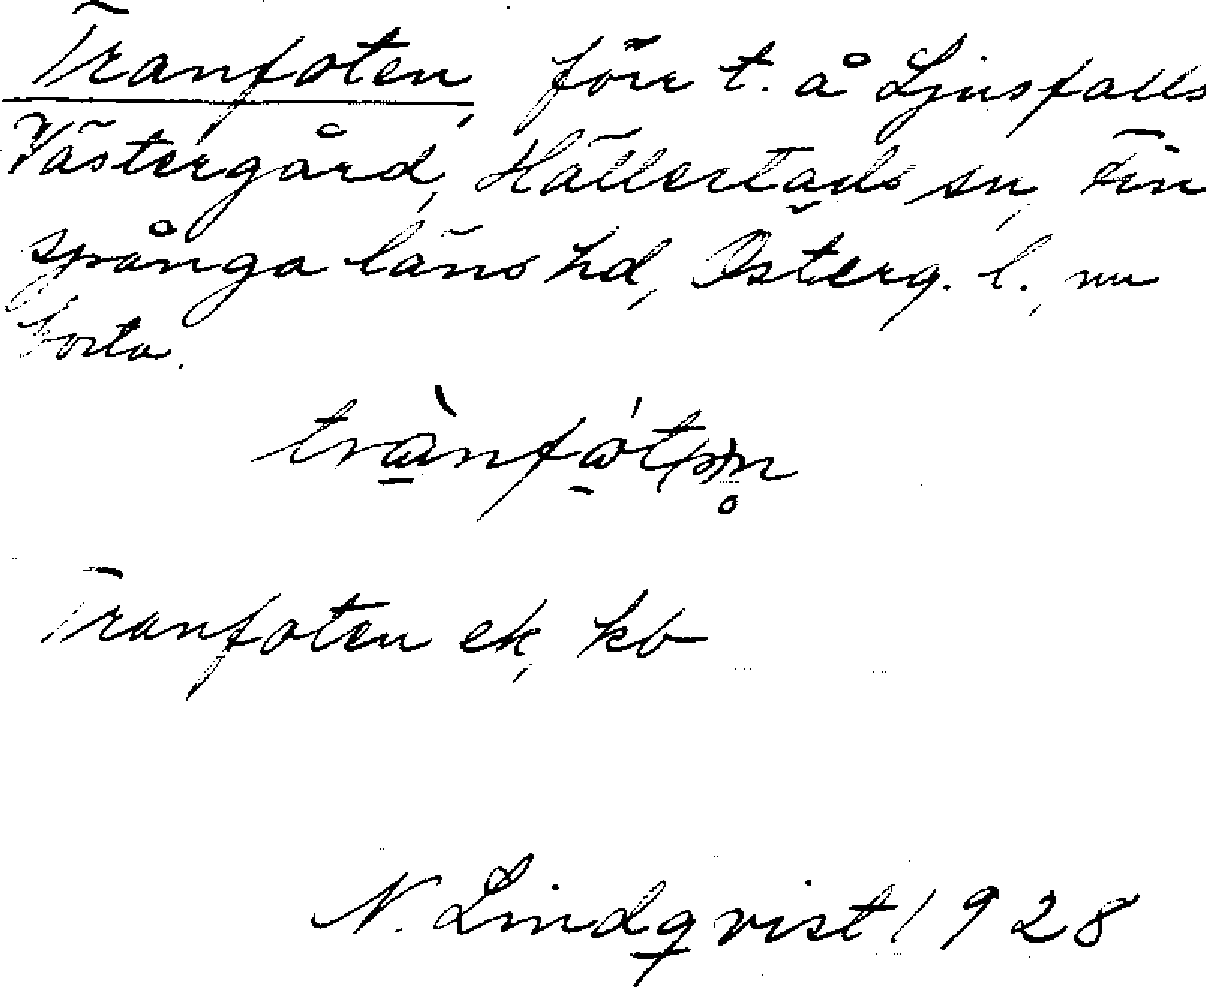 Tranfoten, förr t. å Ljusfalls
Västergård, Hällestads sn, Fin
spånga läns hd, Österg. l., nu
borta.
Tranfoten ek, kb
N. Lindqvist 1928